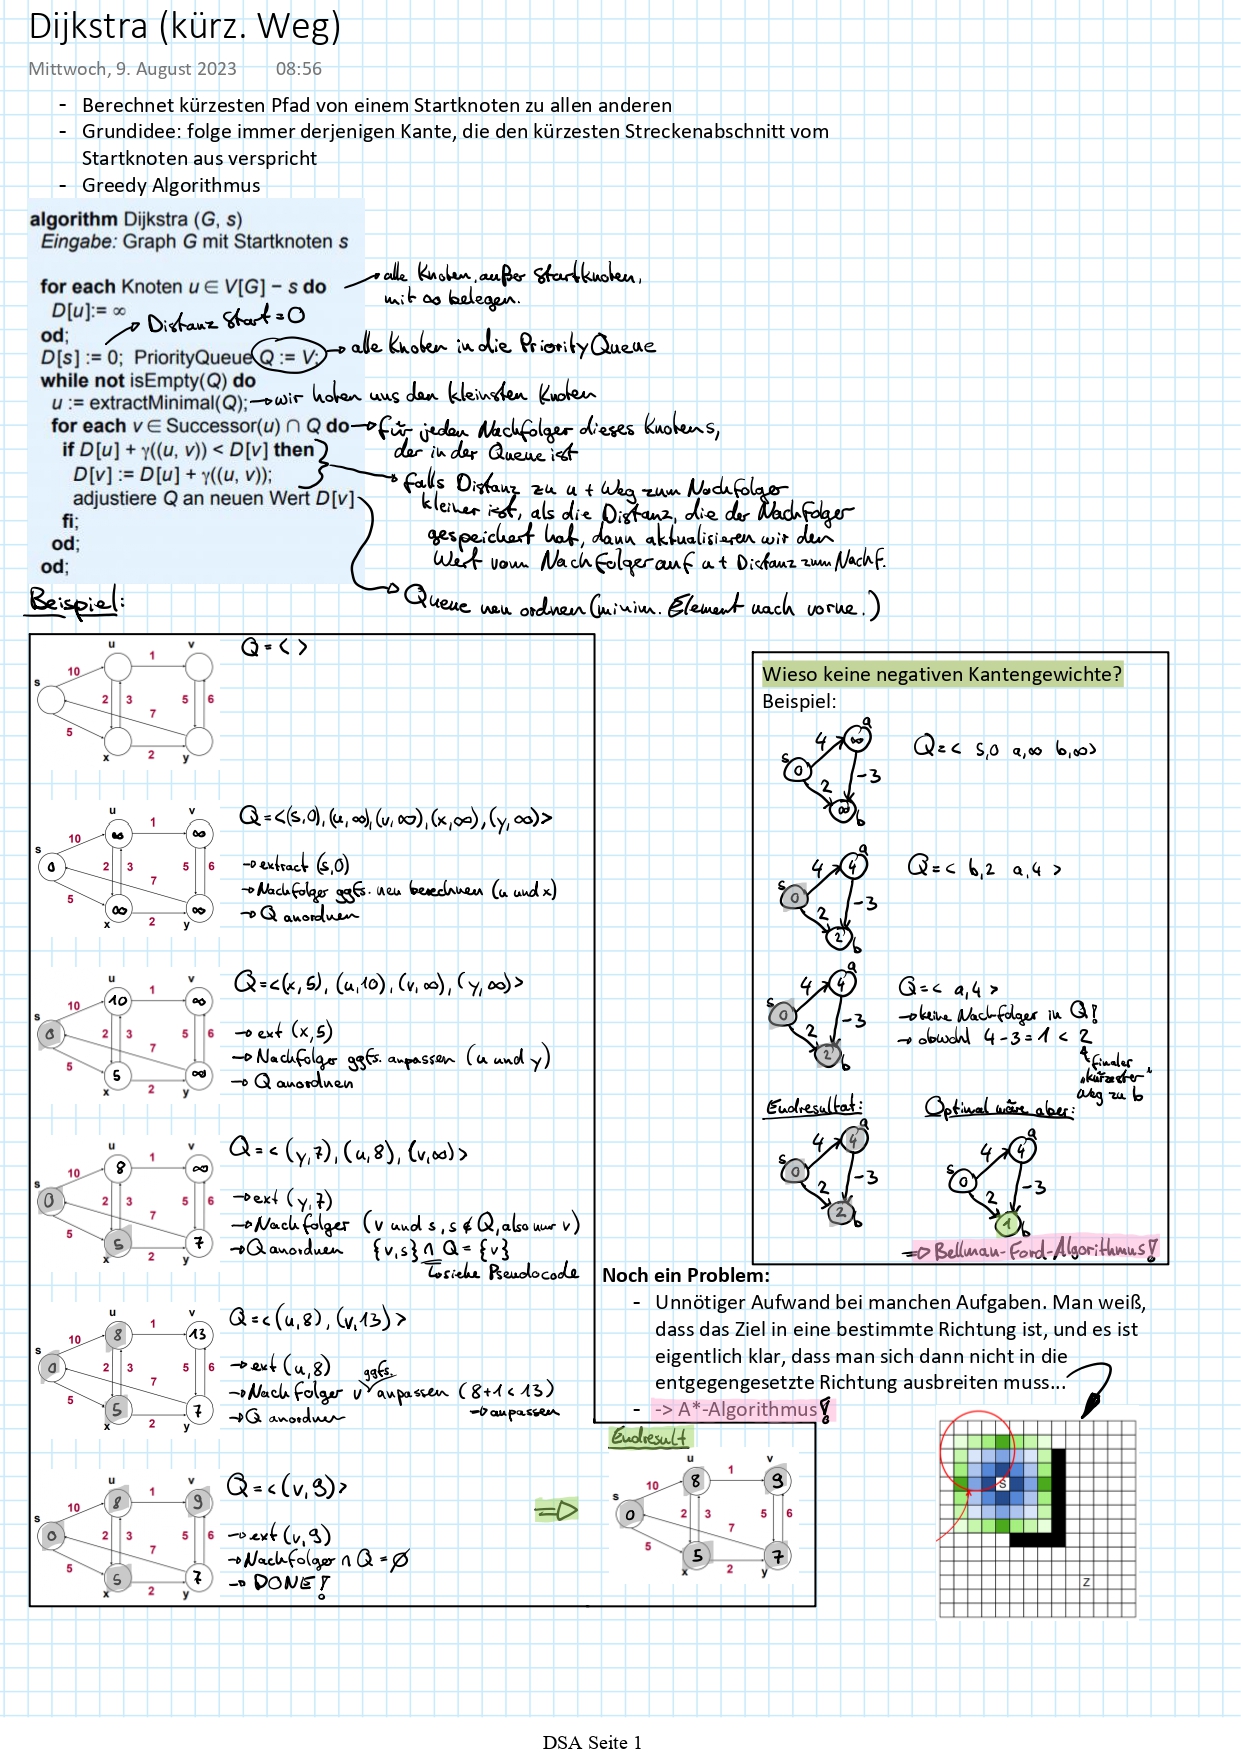 Dijkstra (kürz. Weg)
Mittwoch, 9. August 2023 08:56
- Berechnet kürzesten Pfad von einem Startknoten zu allen anderen
- Grundidee: folge immer derjenigen Kante, die den kürzesten Streckenabschnitt vom
Startknoten aus verspricht
- Greedy Algorithmus
algorithm Dijkstra (G, s)
Eingabe: Graph G mit Startknoten s
for each Knoten u ∈ V[G] − s do
→ alle Knoten, außer Startknoten,
mit ∞ belegen.
D[u]:= ∞
→ Distanz Start = 0
od;
D[s] := 0; PriorityQueue Q := V;
→ alle Knoten in die PriorityQueue
while not isEmpty(Q) do
u := extractMinimal(Q);
→ wir holen uns den kleinsten Knoten
for each v ∈ Successor(u) ∩ Q do
→ für jeden Nachfolger dieses Knotens,
der in der Queue ist
if D[u] + γ((u, v)) < D[v] then
D[v] := D[u] + γ((u, v));
→ falls Distanz zu u + Weg zum Nachfolger
kleiner ist, als die Distanz, die der Nachfolger
gespeichert hat, dann aktualisieren wir den
Wert vom Nachfolger auf u + Distanz zum Nachf.
adjustiere Q an neuen Wert D[v]
→ Queue neu ordnen (minim. Element nach vorne.)
fi;
od;
od;
Beispiel:
Q = < >
u v
1
10
s
2 3 5 6
7
5
x 2 y
Q=<(s,0), (u,∞), (v,∞), (x,∞), (y,∞)>
→ extract (s,0)
→ Nachfolger ggfs. neu berechnen (u und x)
→ Q anordnen
u v
∞ 1 ∞
10
s
0 2 3 5 6
7
5
∞ ∞
x 2 y
Q=<(x,5), (u,10), (v,∞), (y,∞)>
→ ext (x,5)
→ Nachfolger ggfs. anpassen (u und y)
→ Q anordnen
u v
10 1 ∞
10
s
0 2 3 5 6
7
5
5 ∞
x 2 y
Q=<(y,7), (u,8), (v,∞)>
→ ext (y,7)
→ Nachfolger (v und s, s ∉ Q, also nur v)
→ Q anordnen {v,s} ∩ Q = {v}
↳ siehe Pseudocode
u v
8 1 ∞
10
s
0 2 3 5 6
7
5
5 7
x 2 y
Q=<(u,8), (v,13)>
→ ext (u,8)
ggfs.
→ Nachfolger v anpassen (8+1 < 13)
→ anpassen
→ Q anordnen
u v
8 1 13
10
s
0 2 3 5 6
7
5
5 7
x 2 y
Q=<(v,9)>
→ ext (v,9)
→ Nachfolger ∩ Q = ∅
→ DONE!
u v
8 1 9
10
s
0 2 3 5 6
7
5
5 7
x 2 y
⇒
Endresult
u v
8 1 9
10
s
0 2 3 5 6
7
5
5 7
x 2 y
Wieso keine negativen Kantengewichte?
Beispiel:
a
4 ∞
s
0 -3
2
∞ b
Q=< s,0 a,∞ b,∞>
a
4 4
s
0 -3
2
2 b
Q=< b,2 a,4 >
a
4 4
s
0 -3
2
2 b
Q=< a,4 >
→ keine Nachfolger in Q!
→ obwohl 4-3=1 < 2
finaler
"kürzester"
Weg zu b
Endresultat:
a
4 4
s
0 -3
2
2 b
Optimal wäre aber:
a
4 4
s
0 -3
2
1 b
⇒ Bellman-Ford-Algorithmus!
Noch ein Problem:
- Unnötiger Aufwand bei manchen Aufgaben. Man weiß,
dass das Ziel in eine bestimmte Richtung ist, und es ist
eigentlich klar, dass man sich dann nicht in die
entgegengesetzte Richtung ausbreiten muss...
- -> A*-Algorithmus!
S
Z
DSA Seite 1